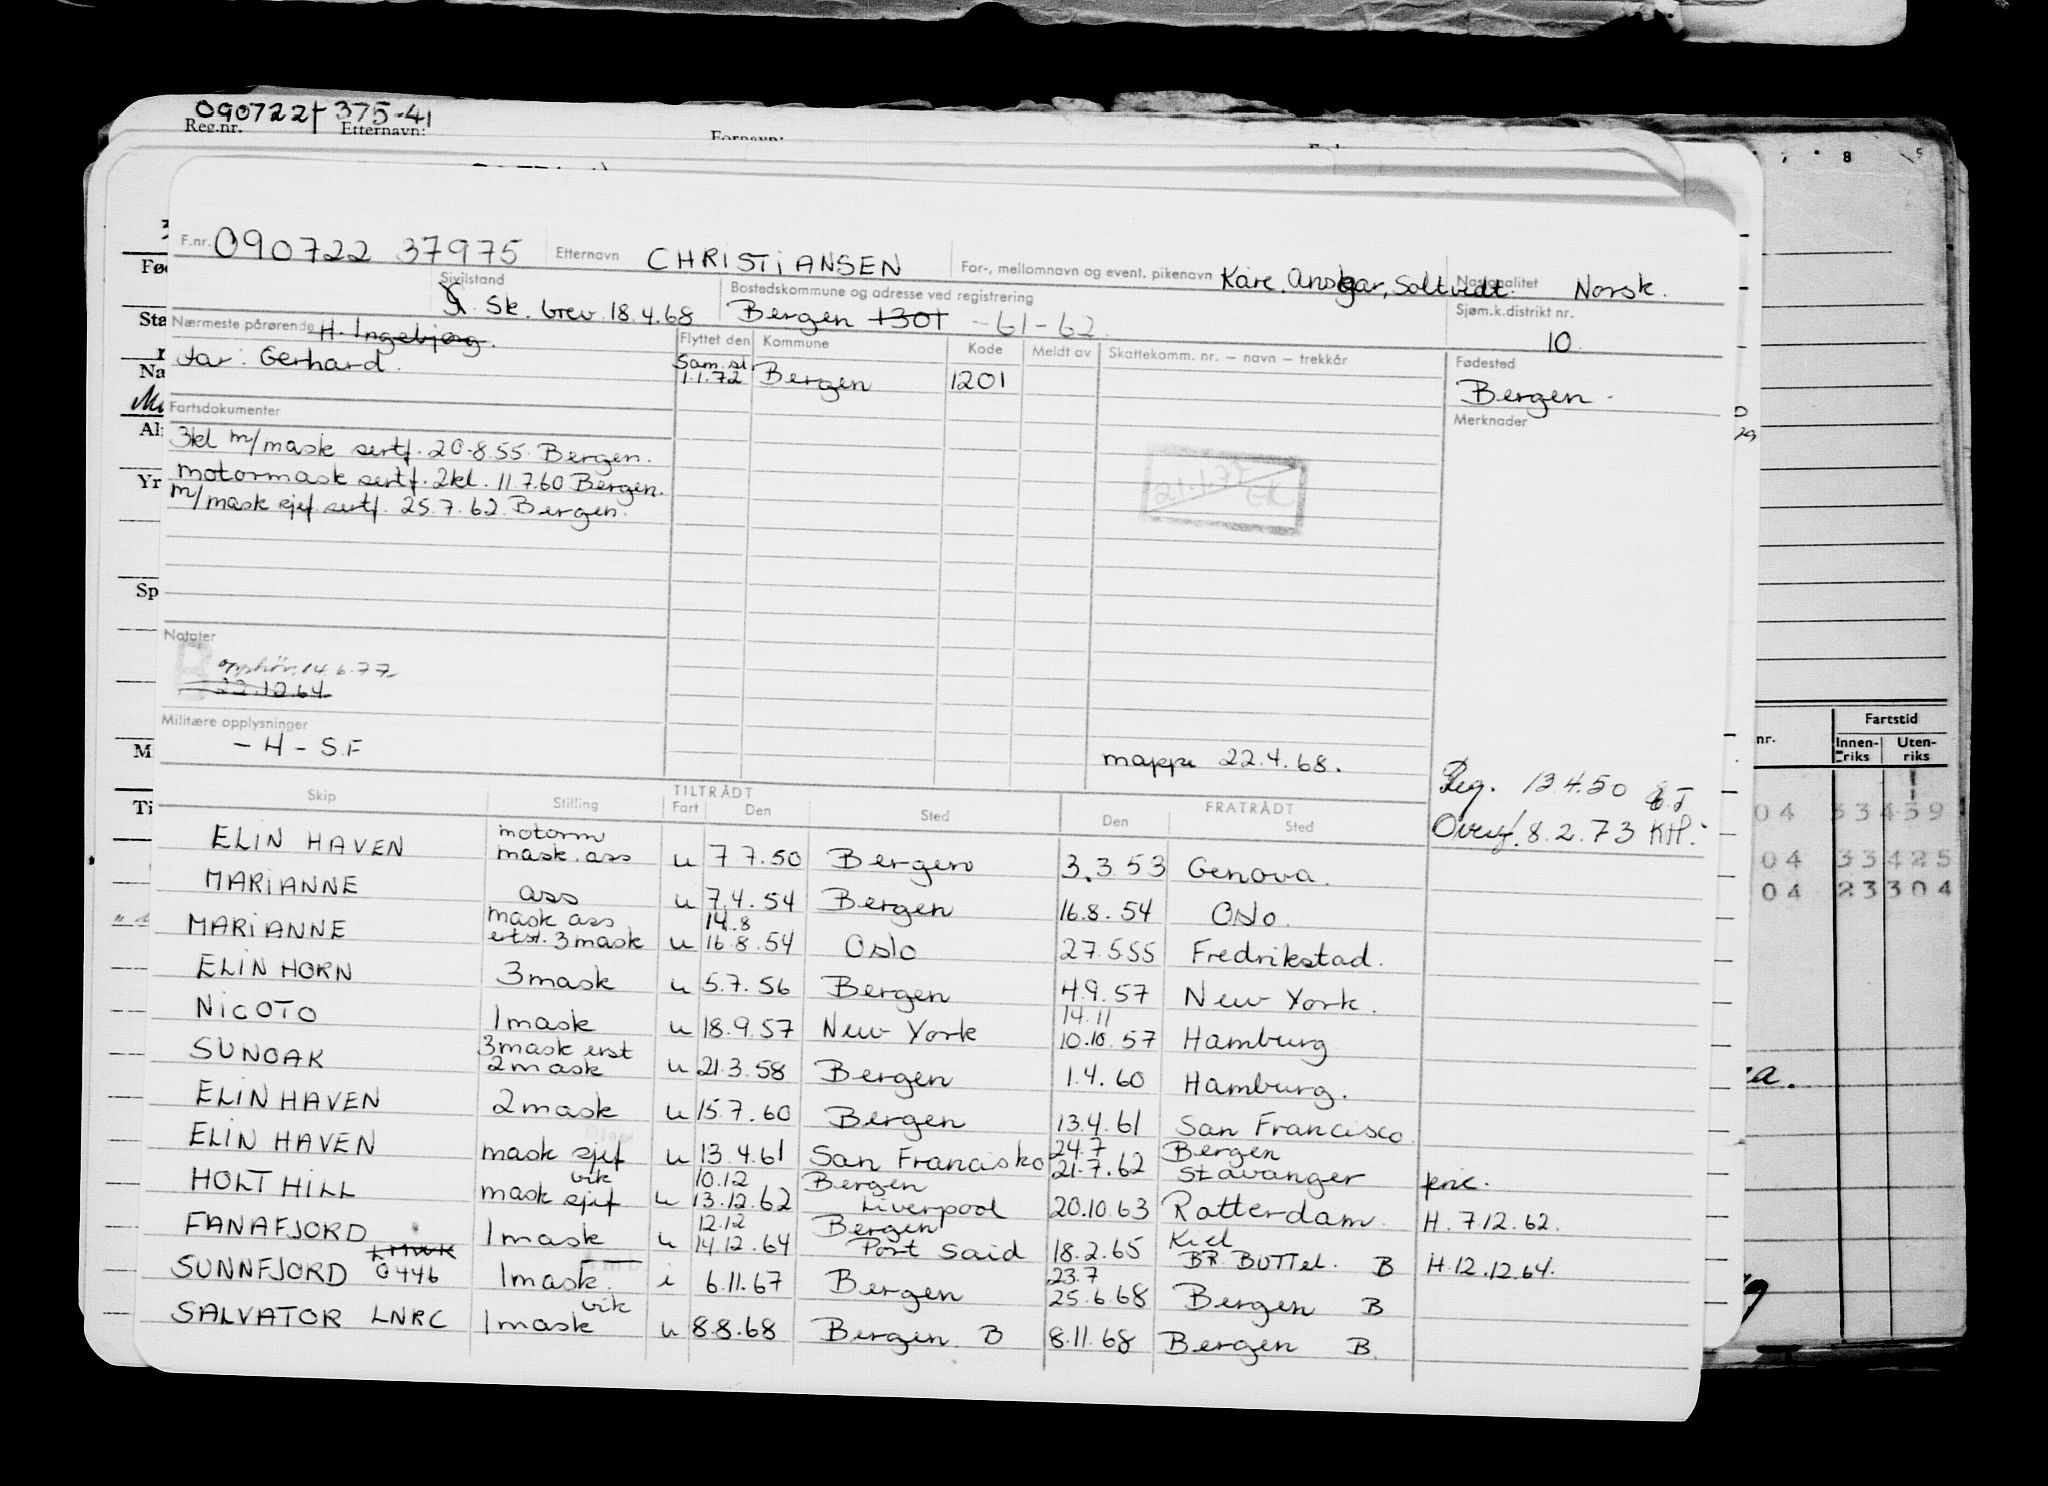 090722 375-41
Reg.nr. Etternavn: Fornavn:
F.nr. 090722 37975 Etternavn CHRISTIANSEN For-, mellomnavn og event. pikenavn Kåre. Ansgar, Soltvedt. Nasjonalitet Norsk.
Sivilstand Bostedskommune og adresse ved registrering Sjøm.k.distrikt nr.
G. Sk. brev. 18.4.68 Bergen 1301 -61-62. 10.
Nærmeste pårørende H. Ingebjørg. Flyttet den Kommune Kode Meldt av Skattekomm. nr. – navn – trekkår Fødested
Far: Gerhard. Sam. st. 1.1.72 Bergen 1201 Bergen.
Fartsdokumenter Merknader
3kl m/mask sertf. 20.8.55 Bergen.
motormask sertf. 2kl. 11.7.60 Bergen.
m/mask sjef sertf. 25.7.62 Bergen.
21.1.77
ER
Notater
B opphör. 14.6.77
22.12.64.
Militære opplysninger
-H-SF
mappe 22.4.68.
Reg. 13.4.50
Overf. 8.2.73 KH.
Skip Stilling TILTRÅDT Fart Den Sted FRATRÅDT Den Sted
ELIN HAVEN motorm mask.ass u 7.7.50 Bergen 3.3.53 Genova.
MARIANNE ass u 7.4.54 Bergen 16.8.54 Oslo.
MARIANNE mask ass erst. 3mask u 14.8 16.8.54 Oslo 27.5.55 Fredrikstad.
ELIN HORN 3mask u 5.7.56 Bergen 4.9.57 New York.
NICOTO 1mask u 18.9.57 New York 14.11 10.10.57 Hamburg
SUNOAK 3mask erst 2mask u 21.3.58 Bergen 1.4.60 Hamburg.
ELIN HAVEN 2mask u 15.7.60 Bergen 13.4.61 San Francisco.
ELIN HAVEN mask sjef u 13.4.61 San Francisko 24.7 21.7.62 Bergen Stavanger
HOLTHILL vik mask sjef u 10.12 13.12.62 Bergen Liverpool 20.10.63 Rotterdam. H. 7.12.62.
FANAFJORD 1mask u 12.12 14.12.64 Bergen Port Said 18.2.65 Kiel BR. BUTTel. B H. 12.12.64.
SUNNFJORD 0446 1mask i 6.11.67 Bergen 23.7 25.6.68 Bergen B
SALVATOR LNRC vik 1mask u 8.8.68 Bergen. B 8.11.68 Bergen B.
7 8
nr.
Fartstid
Innen-riks Uten-riks
04 33459
04 33425
04 23304